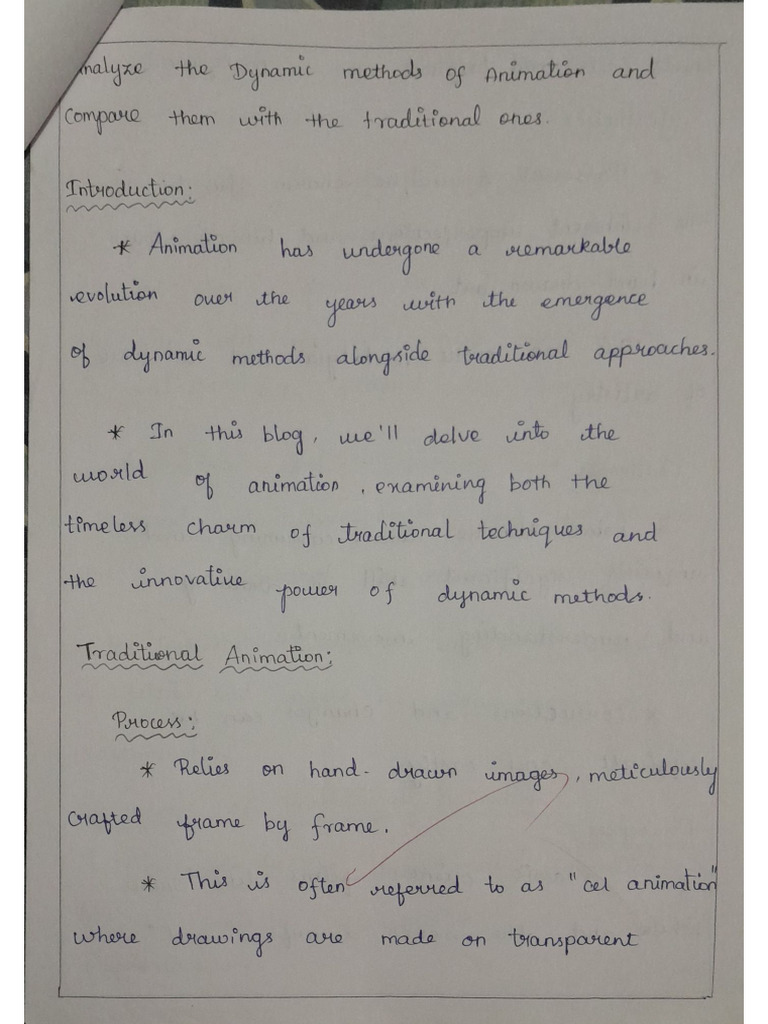 Analyze the Dynamic methods of Animation and
Compare them with the traditional ones.
Introduction:
* Animation has undergone a remarkable
evolution over the years with the emergence
of dynamic methods alongside traditional approaches.
* In this blog, we'll delve into the
world of animation, examining both the
timeless charm of traditional techniques and
the innovative power of dynamic methods.
Traditional Animation:
Process:
* Relies on hand-drawn images, meticulously
crafted frame by frame.
* This is often referred to as "cel animation"
where drawings are made on transparent